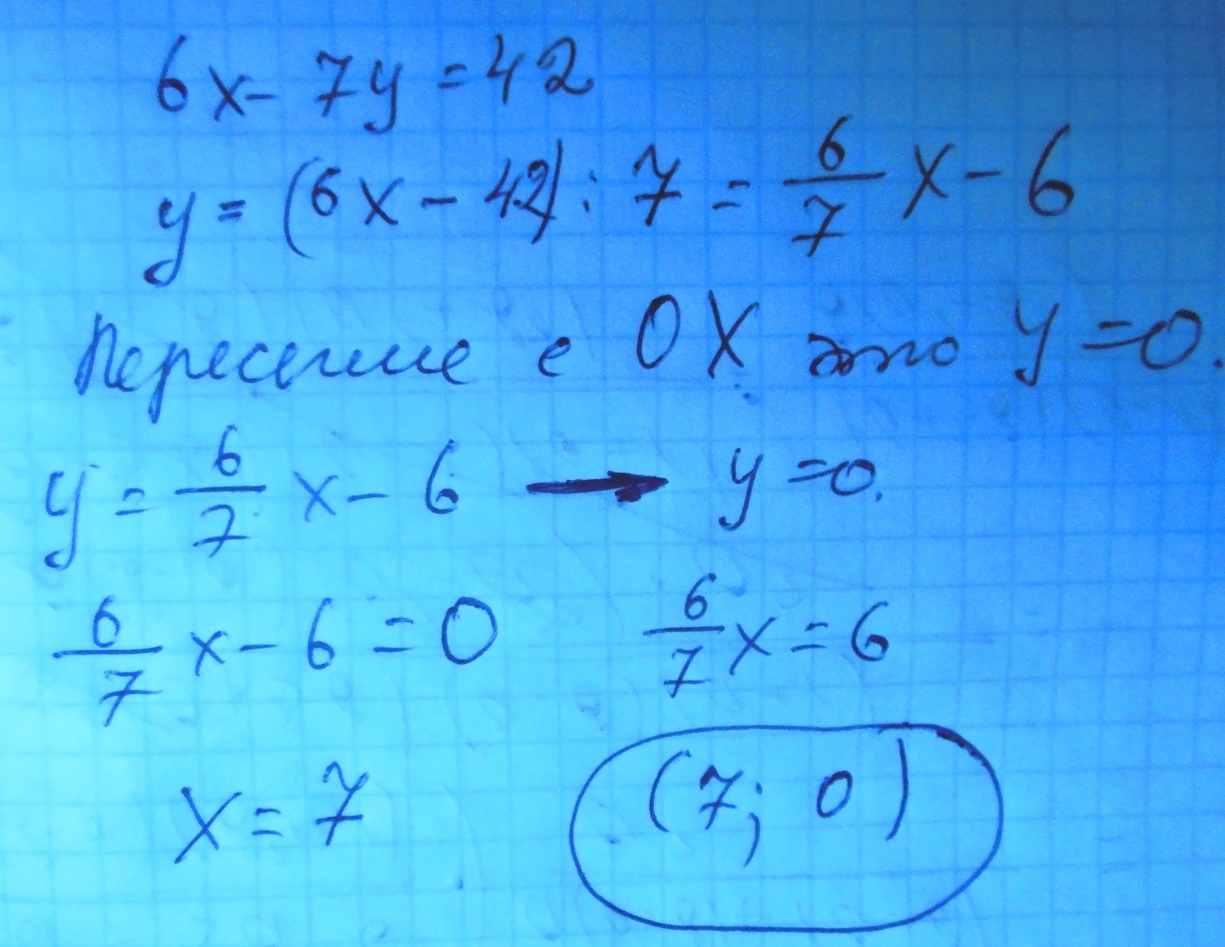 6x - 7y = 42
y = (6x - 42) : 7 = 6/7 x - 6
Пересечение с OX это y = 0.
y = 6/7 x - 6 → y = 0.
6/7 x - 6 = 0 6/7 x = 6
x = 7 (7; 0)